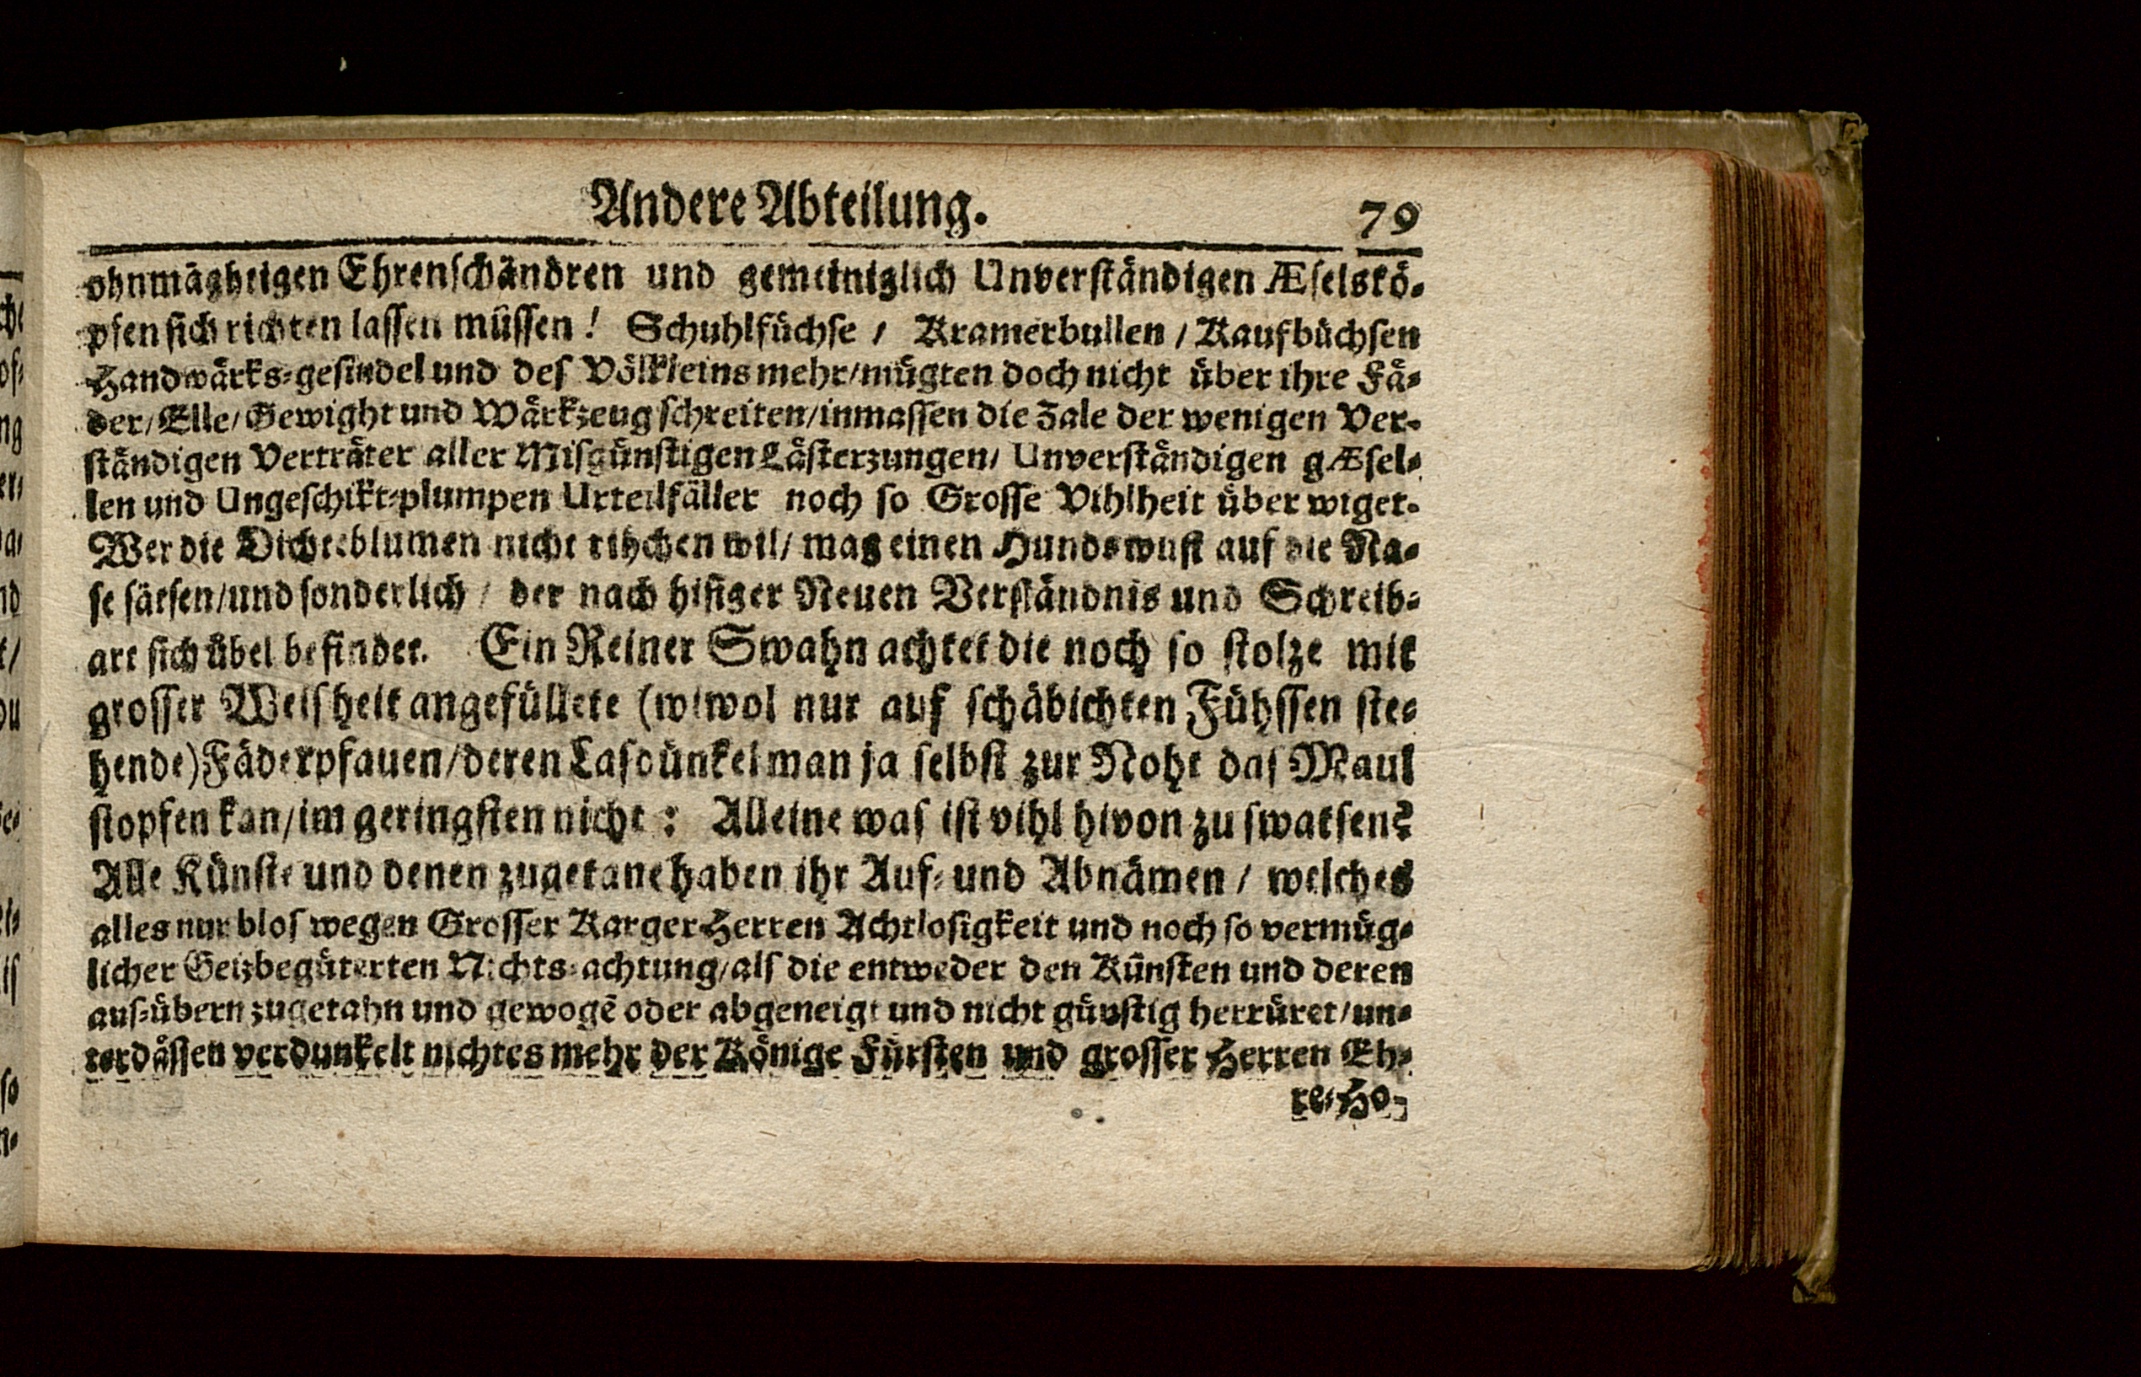 Andere Abteilung. 79
ohnmäghtigen Ehrenschändren und gemeiniglich Unverständigen Æselskö-
pfen sich richten lassen müssen! Schuhlfüchse / Kramerbullen / Kaufbüchsen
Handwärks-gesindel und des Völkleins mehr / mügten doch nicht über ihre Fä-
der / Elle / Gewight und Wärkzeug schreiten / inmassen die Zale der wenigen Ver-
ständigen Verträter aller Misgünstigen Lästerzungen / Unverständigen gÆsel-
len und Ungeschikt-plumpen Urteilfäller noch so Grosse Vihlheit über wiget.
Wer die Dichteblumen nicht rihchen wil / mag einen Hundswust auf die Na-
se sätsen / und sonderlich / der nach hisiger Neuen Verständnis und Schreib-
art sich übel befindet. Ein Reiner Swahn achtet die noch so stolze mit
grosser Weisheit angefüllete (wiwol nur auf schäbichten Fühssen ste-
hende) Fäderpfauen / deren Lasdünkel man ja selbst zur Noht das Maul
stopfen kan / im geringsten nicht: Alleine was ist vihl hivon zu swatsen?
Alle Künste und denen zugetane haben ihr Auf- und Abnämen / welches
alles nur blos wegen Grosser Karger Herren Achtlosigkeit und noch so vermüg-
licher Geizbegüterten Nichts-achtung / als die entweder den Künsten und deren
aus-übern zugetahn und gewogẽ oder abgeneigt und nicht günstig herrüret / un-
terdässen verdunkelt nichtes mehr der Könige Fürsten und grosser Herren Eh-
re / Ho-